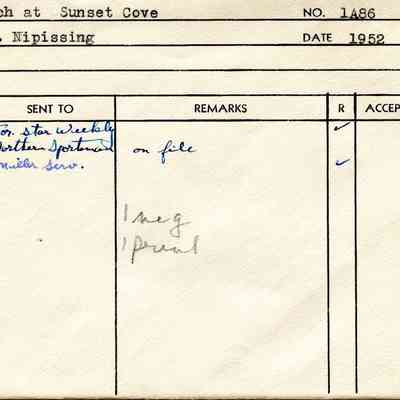 ch at Sunset Cove NO. 1A86
. Nipissing DATE 1952
SENT TO REMARKS R ACCEP
Tor. Star Weekly ✓
Northern Sportsman on file
Miller Serv. ✓
1 neg
1 print